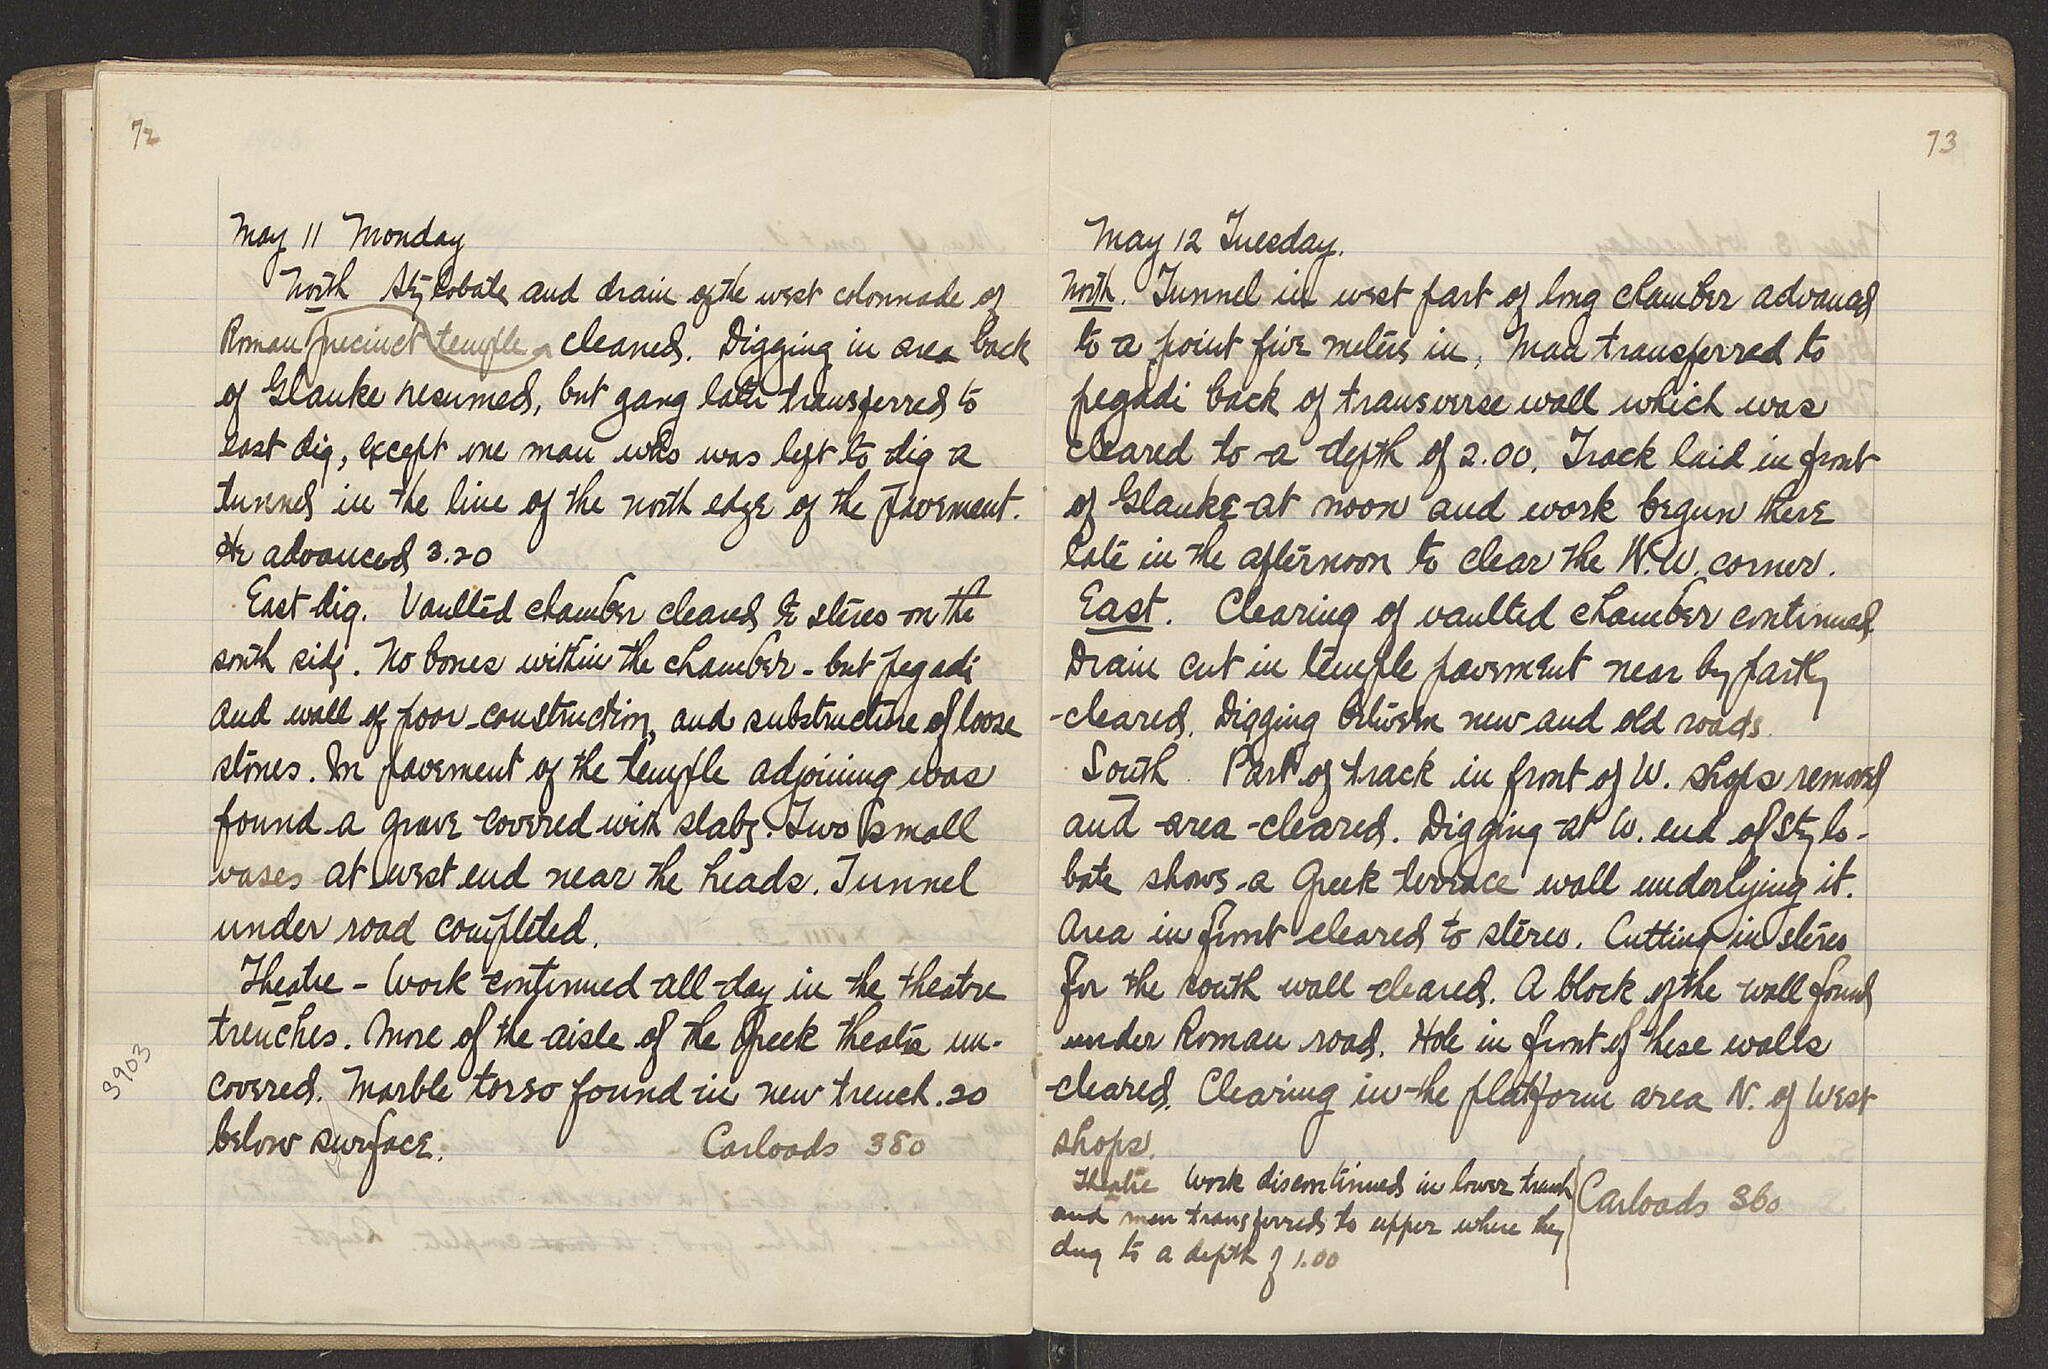 72
May 11 Monday
North Stylobate and drain of the west colonnade of
Roman precinct temple cleared. Digging in area back
of Glauke resumed, but gang later transferred to
east dig, except one man who was left to dig a
tunnel in the line of the north edge of the pavement.
He advanced 3.20
East dig. Vaulted chamber cleared to stereo on the
south side. No bones within the chamber - but pegadi
and wall of poor construction, and substructure of loose
stones. In pavement of the temple adjoining was
found a grave covered with slabs. Two small
vases at west end near the heads. Tunnel
under road completed.
Theatre - Work continued all day in the theatre
trenches. More of the aisle of the Greek theatre un-
covered. Marble torso found in new trench .20
below surface. Carloads 380
3903
73
May 12 Tuesday.
North. Tunnel in west part of long chamber advanced
to a point five meters in. Man transferred to
pegadi back of transverse wall which was
cleared to a depth of 2.00. Track laid in front
of Glauke at noon and work begun there
late in the afternoon to clear the N.W. corner.
East. Clearing of vaulted chamber continued
Drain cut in temple pavement near by partly
cleared. Digging between new and old roads.
South. Part of track in front of W. shops removed
and area cleared. Digging at W. end of stylo-
bate shows a Greek terrace wall underlying it.
Area in front cleared to stereo. Cutting in stereo
for the south wall cleared. A block of the wall found
under Roman road. Hole in front of these walls
cleared. Clearing in the platform area N. of West
shops.
Theatre Work discontinued in lower trench
and men transferred to upper where they
dug to a depth of 1.00
Carloads 360